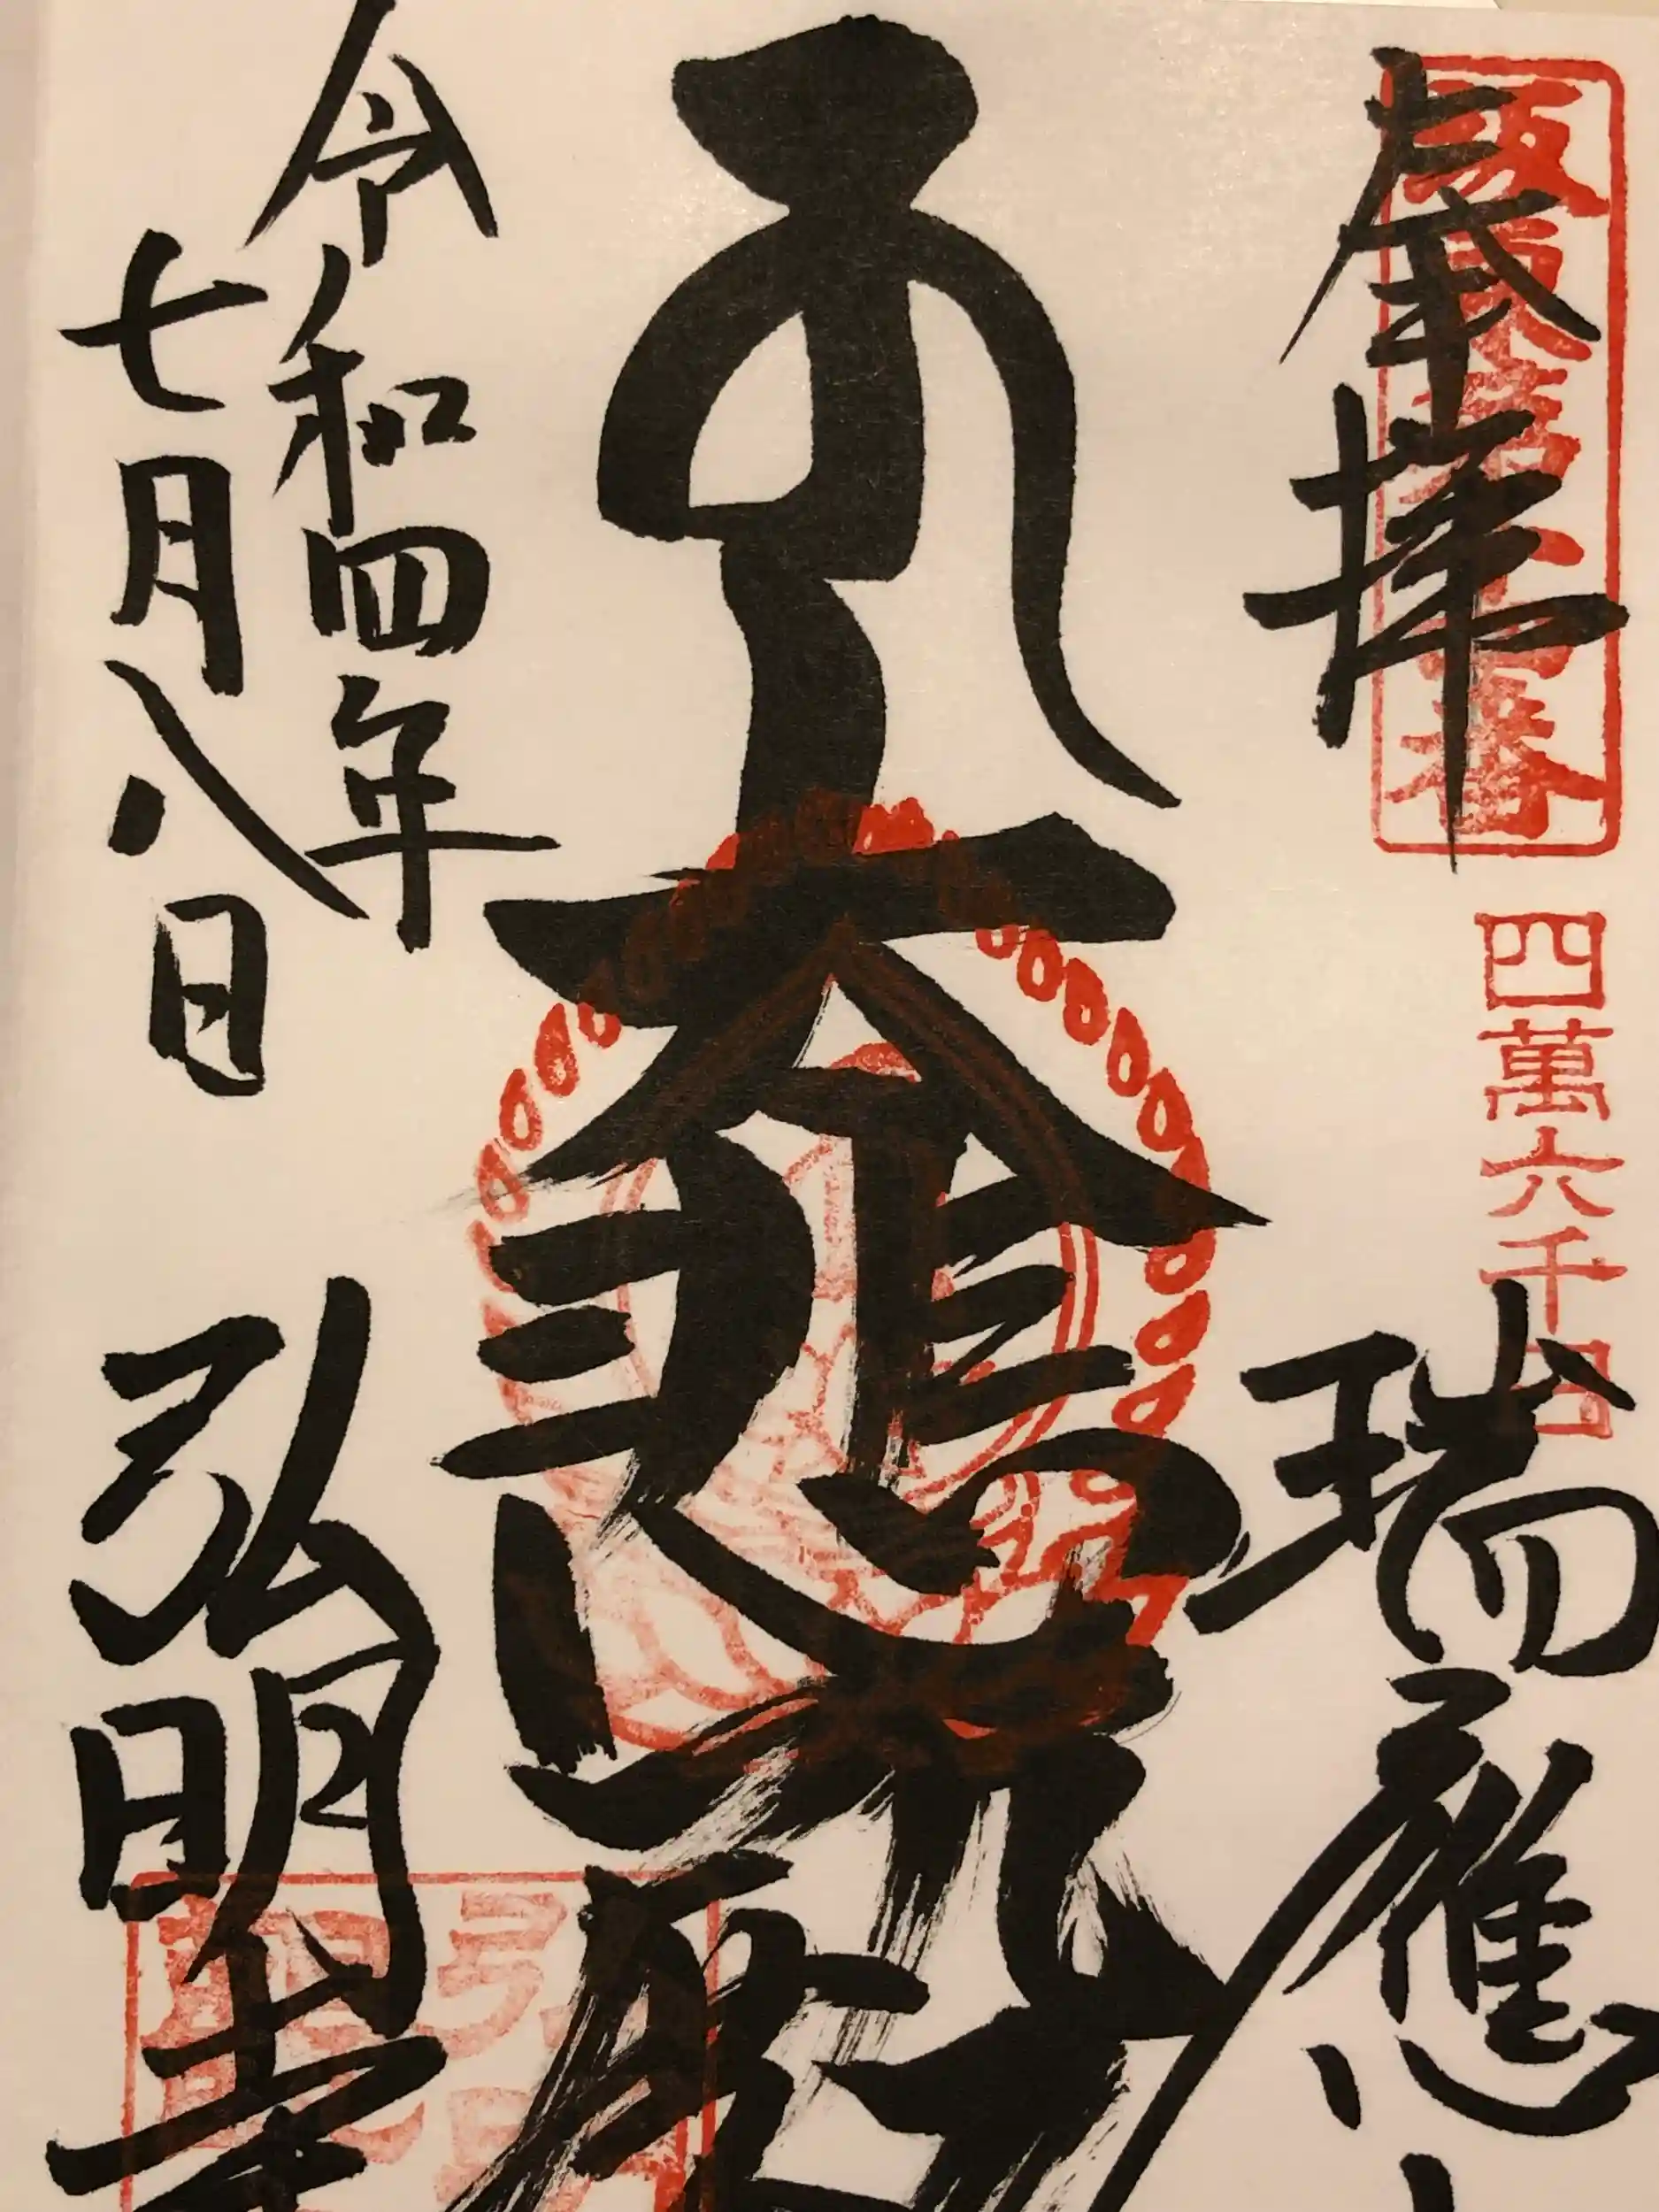 奉拝
四萬六千日
瑞應山
大悲殿
令和四年
七月八日
弘明寺